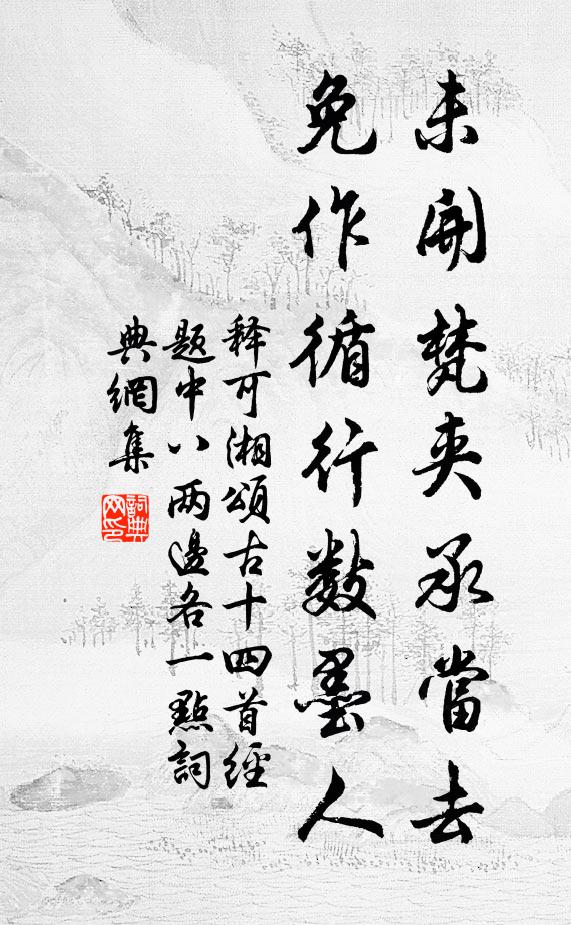 未開梵夾承當去
免作循行數墨人
释可湘頌古十四首經
題中八两邊各一點詞
典網集
詞典
网印